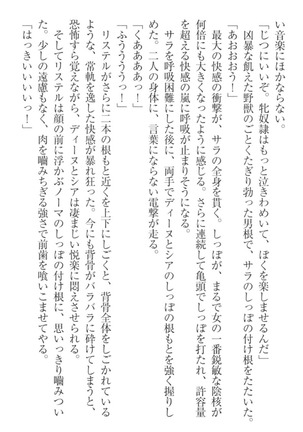 い音楽にほかならない。
「じつにいいぞ。牝奴隷はもっと泣きわめいて、ぼくを楽しませるんだ」
凶暴な飢えた野獣のごとくたぎり勃った男根で、サラのしっぽの付け根をたたいた。
「あおおおう！」
最大の快感の衝撃が、サラの全身を貫く。しっぽが、まるで女の一番鋭敏な陰核が
何倍にも大きくなったように感じる。さらに連続して亀頭でしっぽを打たれ、許容量
を超える快感の嵐に呼吸が止まりそうになる。
サラを呼吸困難にした後に、両手でディーヌとシアのしっぽの根もとを強く握りし
めた。二人の身体に、言葉にならない電撃が走る。
「くああああっ！」
「ふうううっ！」
リステルがさらに二本の根もと近くを上下にしごくと、背骨全体をしごかれている
ような、常軌を逸した快感が暴れ狂った。今にも背骨がバラバラに砕けてしまうと、
恐怖すら覚えながら、ディーヌとシアは凄まじい悦楽に悶えさせられる。
そしてリステルは顔の前に浮かぶノーマのしっぽの付け根に、思いっきり嚙みつい
た。少しの遠慮もなく、肉を嚙みちぎる強さで前歯を喰いこませてやる。
「はっきいいいいっ！」